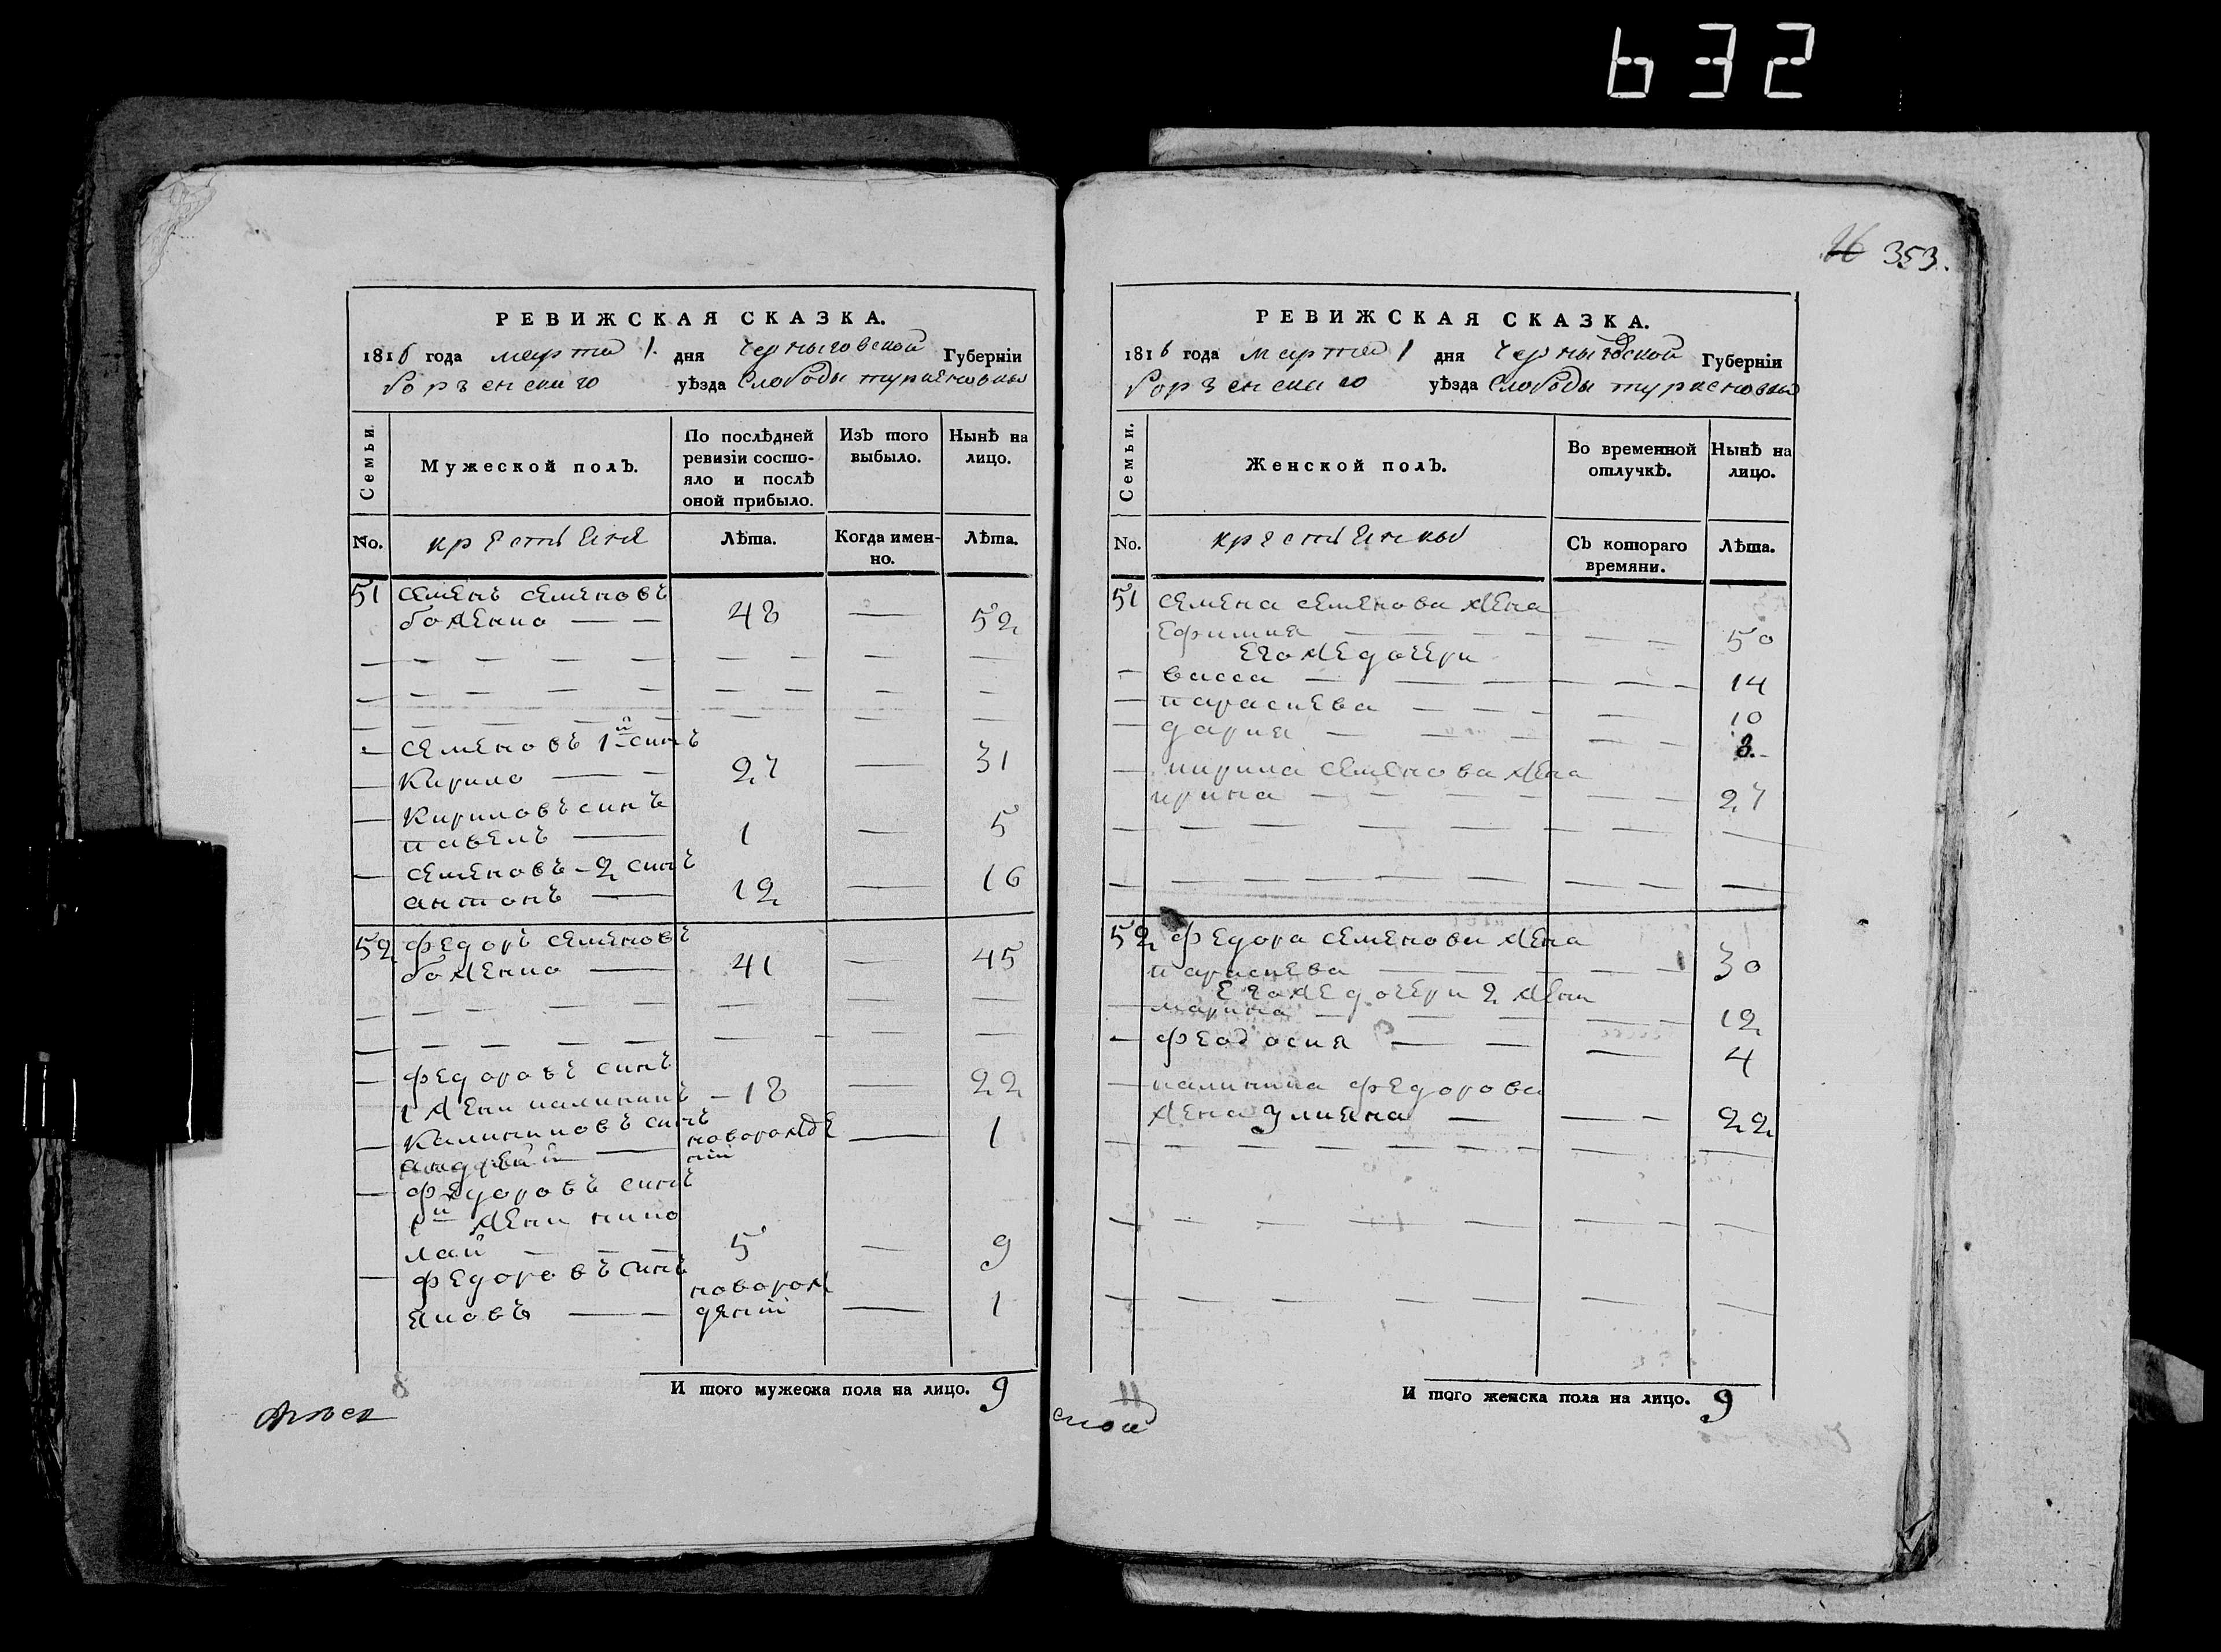 632
26 353.
РЕВИЖСКАЯ СКАЗКА.
1816 года марта 1. дня Черниговской Губерніи
борзенского уѣзда Слободы туркеновки
Семьи
Мужеской полъ.
По послѣдней ревизіи состо-
яло и послѣ
оной прибыло.
Изъ того выбыло.
Нынѣ на лицо.
No. крестьяне Лѣта. Когда имен-
но. Лѣта.
51 семенъ семеновъ
боженко — — 48 — 52
— семеновъ 1й синъ
— Кирило — — 27 — 31
— Кириловъ синъ
павелъ — 1 — 5
— семеновъ – 2 синъ
антонъ — 12 — 16
52 федоръ семеновъ
боженко — 41 — 45
— федоровъ синъ
1 жени калининъ – 18 — 22
— Калининовъ синъ новорожде
андрей — ній — 1
— федоровъ синъ
1й жени нико
лай — — — 5 — 9
— федоровъ синъ новорож
яковъ — — деній — 1
И того мужеска пола на лицо. 9
РЕВИЖСКАЯ СКАЗКА.
1816 года марта 1 дня Черниговской Губерніи
борзенского уѣзда Слободы туркеновки
Семьи.
Женской полъ.
Во временной отлучкѣ.
Нынѣ на лицо.
No. крестьянки Съ котораго
времяни. Лѣта.
51 семена семенова жена
Ефимия — — — — — — 50
Его же дочери
— васса — — — — — 14
— параскева — — — — 10
— дария — — — — — 3
— кирила семенова жена
ирина — — — — — — 27
52 федора семенова жена
параскева — — — — — 30
Его же дочери 2 жени
— марина — — — — — 12
— феодосия — — — 4
— калинина федорова
жена улияна — — — 22
И того женска пола на лицо. 9
ской